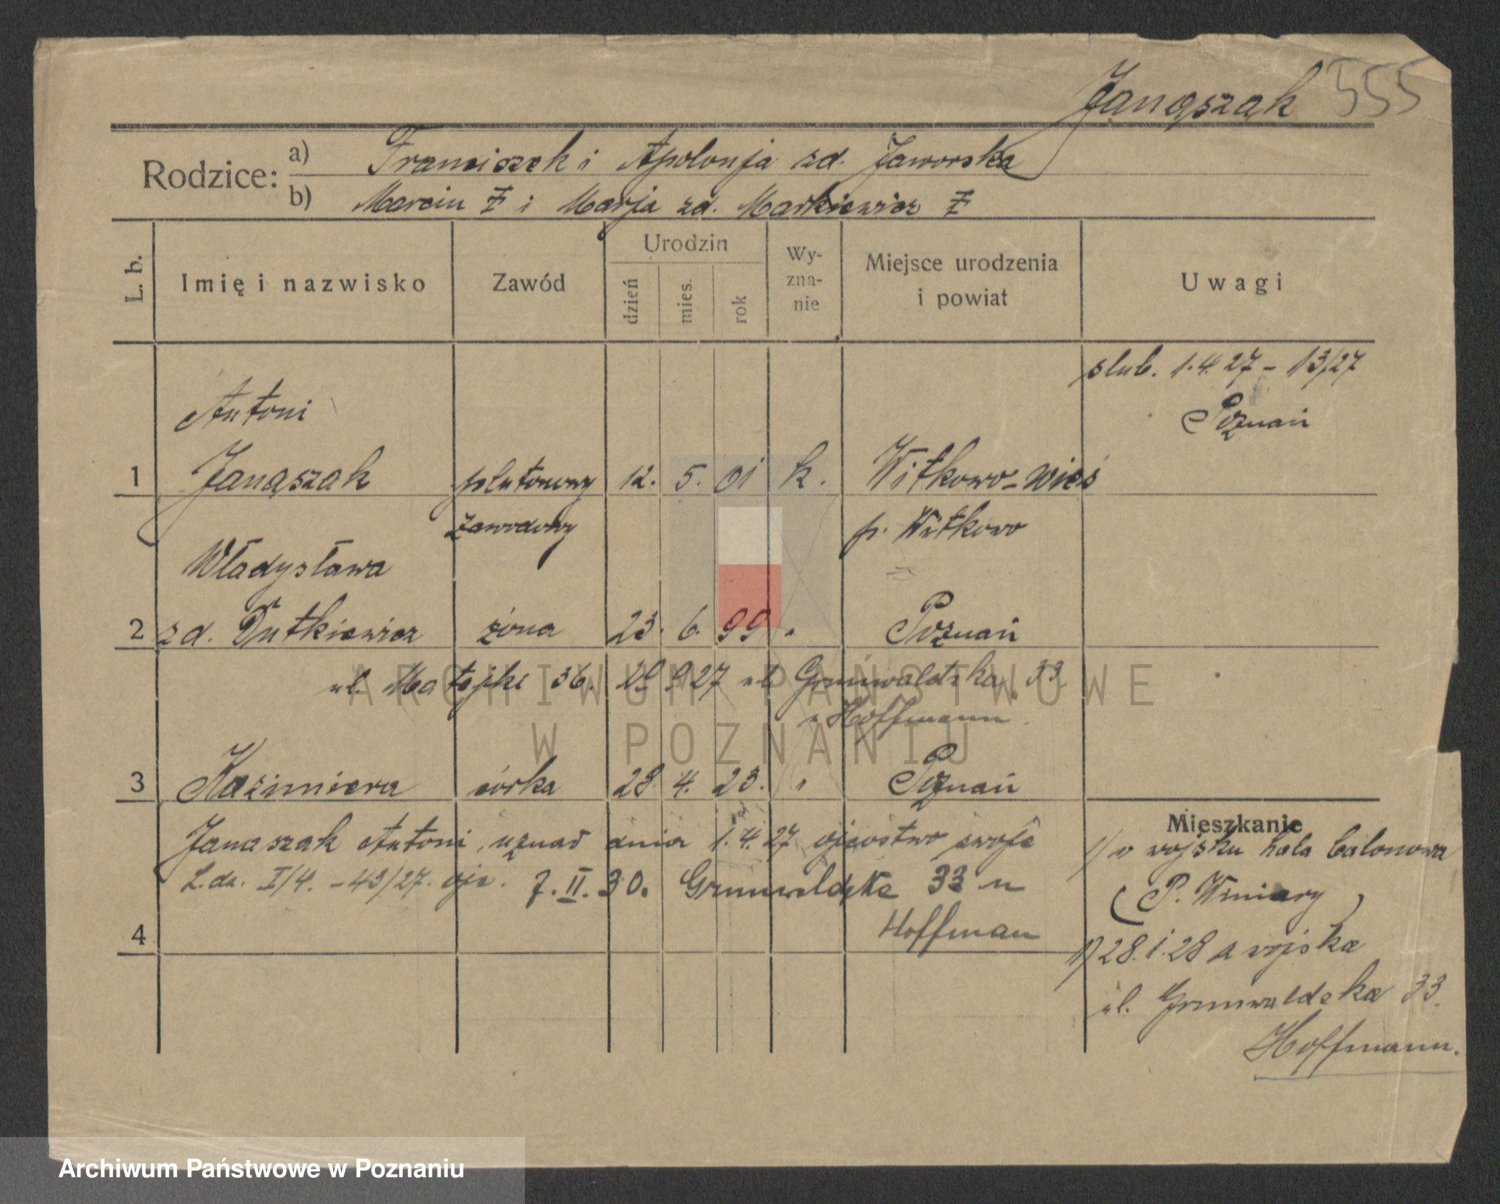 Janaszak 555
Rodzice:
a) Franciszek i Apolonja zd. Jaworska
b) Marcin Ŧ i Marja zd. Markiewicz Ŧ
L. b.
Imię i nazwisko
Zawód
Urodzin
dzień
mies.
rok
Wy-
zna-
nie
Miejsce urodzenia
i powiat
Uwagi
ślub. 1.4.27 - 13/27
Poznań
Antoni
1 Janaszak plutonowy 12. 5. 01 k. Witkowo-wieś
zawodowy p. Witkowo
Władysława
2 zd. Dutkiewicz żona 23. 6. 99 " Poznań
ul. Matejki 36. 9.27 ul. Grunwaldzka 33
Hoffmann
3 Kazimiera córka 28. 4. 23. " Poznań
Janaszak Antoni uznał dnia 1.4.27 ojcostwo swoje
L.dz. I/4. - 43/27. ojc. 7.II.30. Grunwaldzka 33 u
4 Hoffman
Mieszkanie
1/ w wojsku hala balonowa
(P. Winiary)
28.1.28 z wojska
ul. Grunwaldzka 33.
Hoffmann.
ARCHIWUM PAŃSTWOWE
W POZNANIU
Archiwum Państwowe w Poznaniu